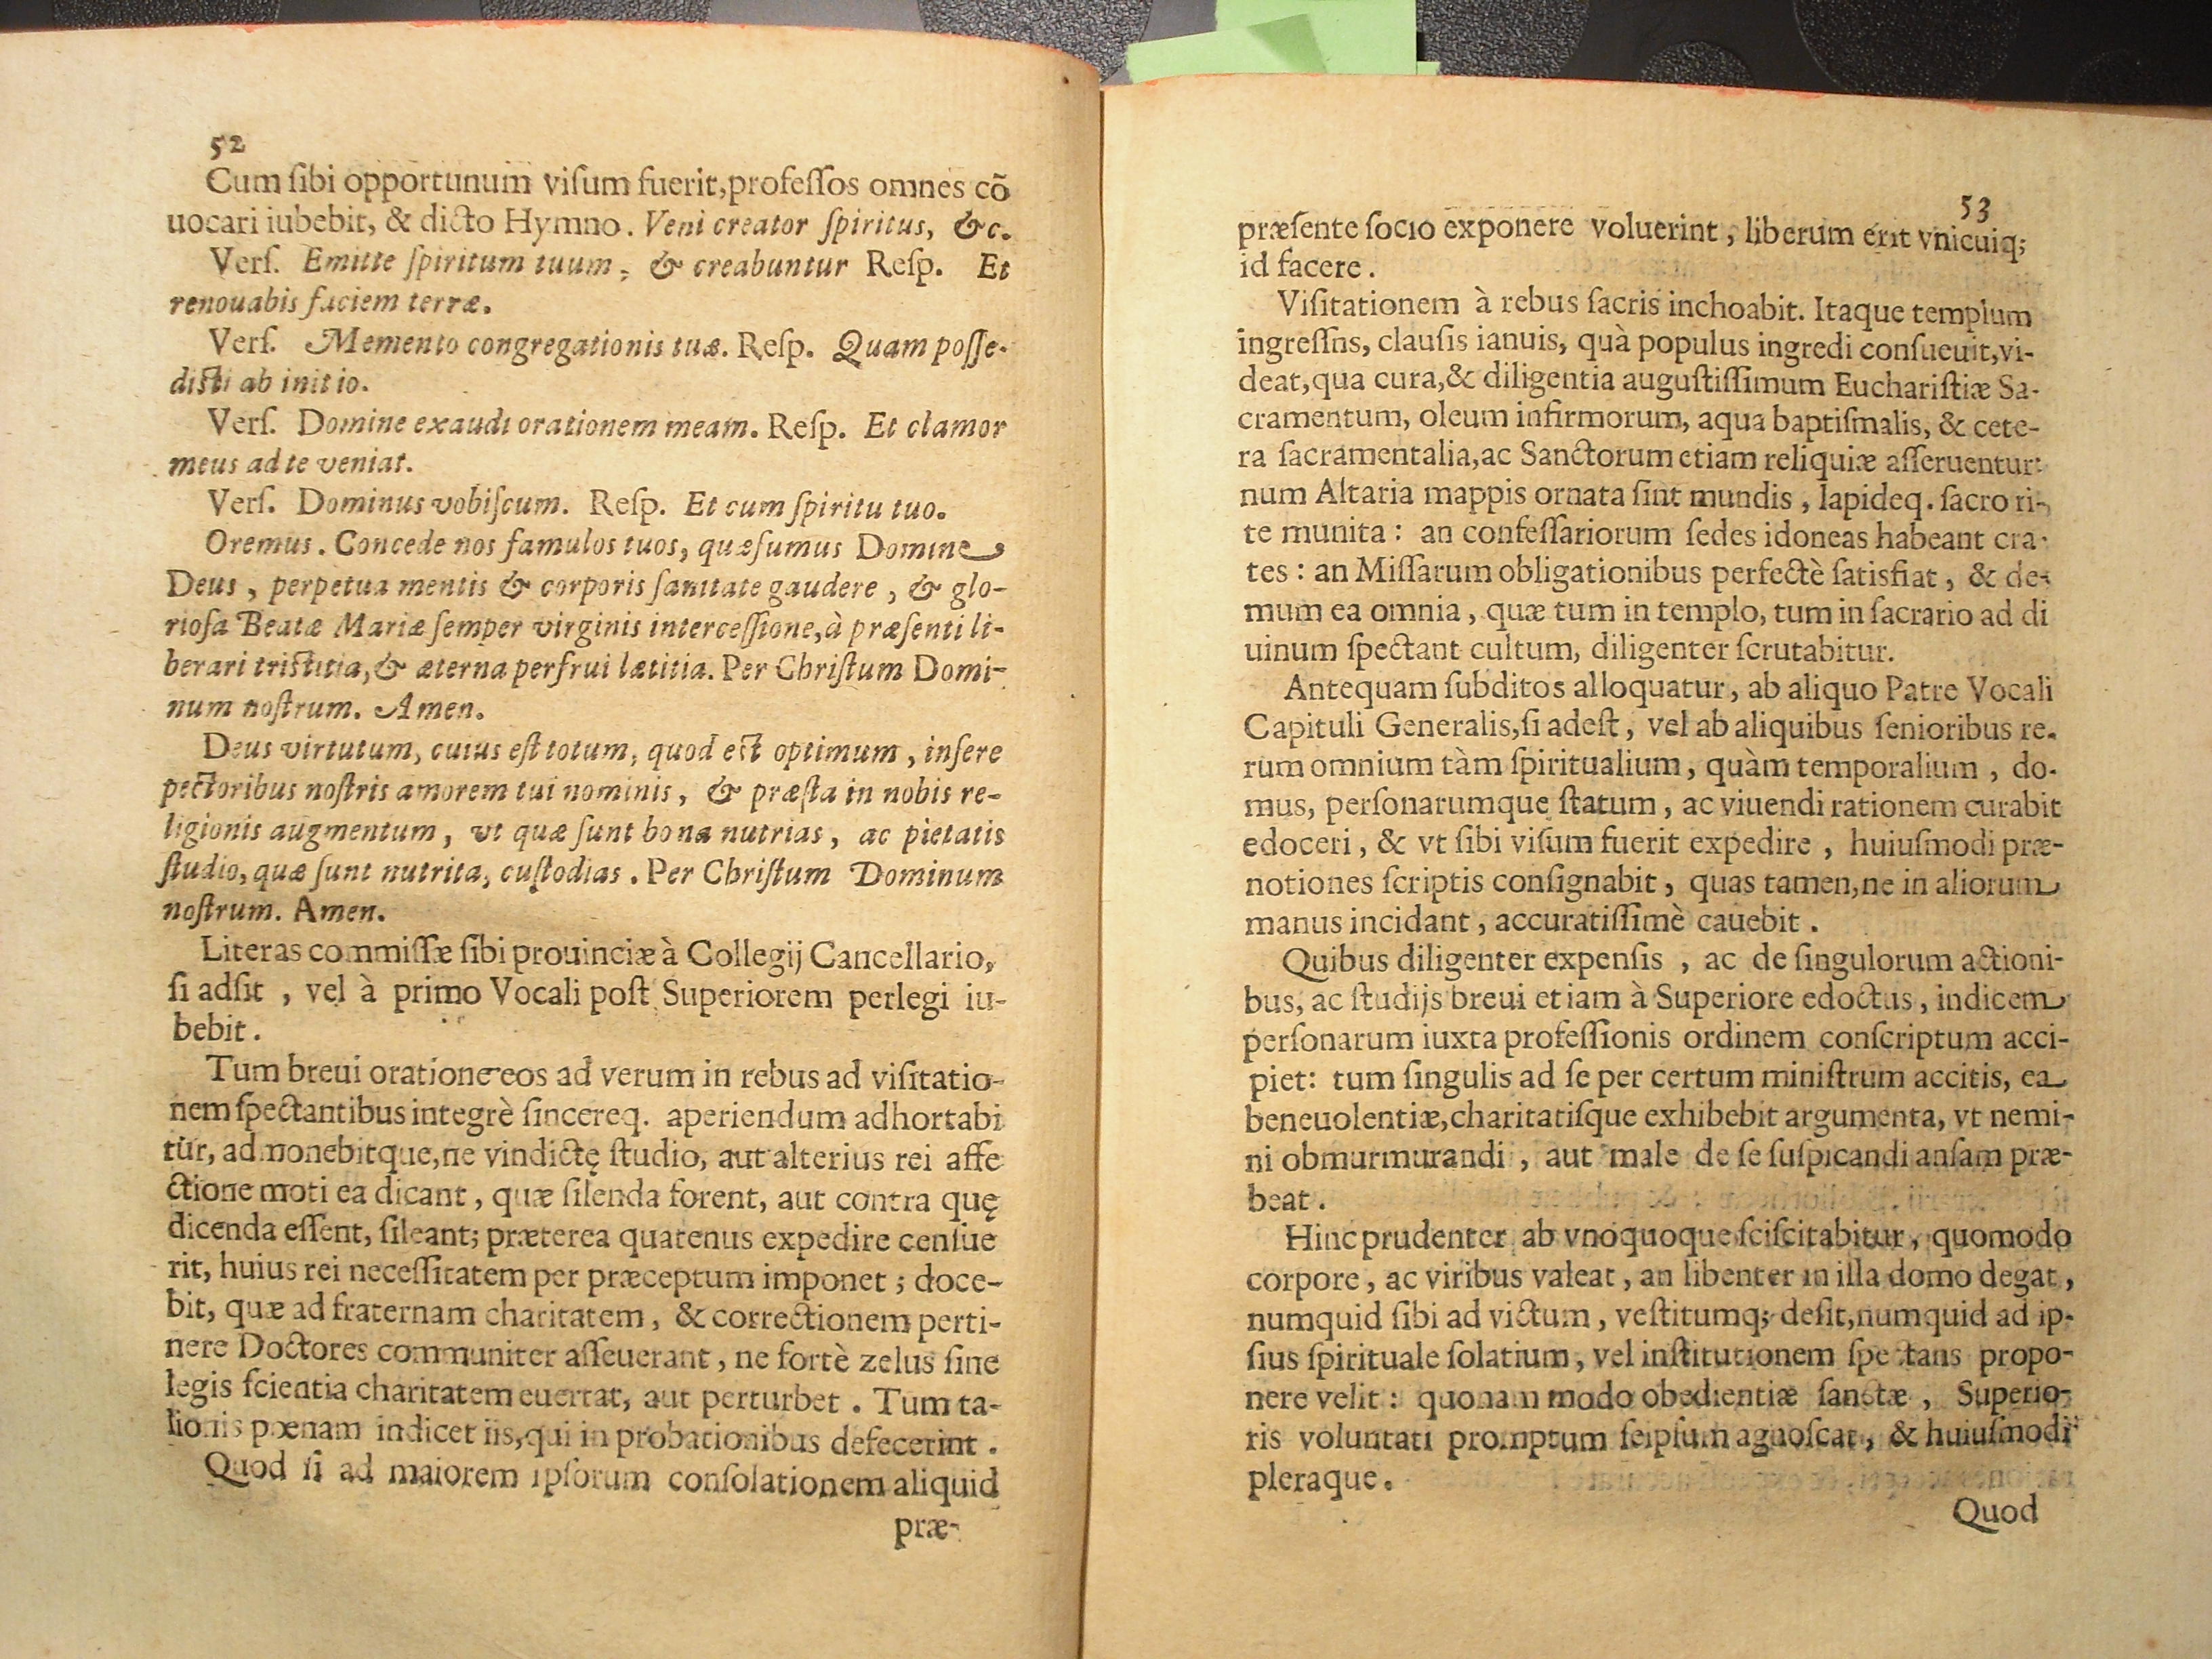 52
Cum ſibi opportunum viſum fuerit,profeſſos omnes cõ
uocari iubebit, & dicto Hymno. Veni creator ſpiritus, &c.
Verſ. Emitte ſpiritum tuum, & creabuntur Reſp. Et
renouabis faciem terræ.
Verſ. Memento congregationis tuæ. Reſp. Quam poſſe-
diſti ab initio.
Verſ. Domine exaudi orationem meam. Reſp. Et clamor
meus ad te veniat.
Verſ. Dominus vobiſcum. Reſp. Et cum ſpiritu tuo.
Oremus. Concede nos famulos tuos, quæſumus Domine
Deus, perpetua mentis & corporis ſanitate gaudere, & glo-
rioſa Beatæ Mariæ ſemper virginis interceſſione,à præſenti li-
berari triſtitia,& æterna perfrui lætitia. Per Chriſtum Domi-
num noſtrum. Amen.
Deus virtutum, cuius eſt totum, quod eſt optimum, inſere
pectoribus noſtris amorem tui nominis, & præſta in nobis re-
ligionis augmentum, vt quæ ſunt bona nutrias, ac pietatis
ſtudio, quæ ſunt nutrita, cuſtodias. Per Chriſtum Dominum
noſtrum. Amen.
Literas commiſſæ ſibi prouinciæ à Collegij Cancellario,
ſi adſit, vel à primo Vocali poſt Superiorem perlegi iu-
bebit.
Tum breui oratione eos ad verum in rebus ad viſitatio-
nem ſpectantibus integrè ſincereq. aperiendum adhortabi
tur, admonebitque,ne vindictę ſtudio, aut alterius rei affe
ctione moti ea dicant, quæ ſilenda forent, aut contra quę
dicenda eſſent, ſileant; præterea quatenus expedire cenſue
rit, huius rei neceſſitatem per præceptum imponet; doce-
bit, quæ ad fraternam charitatem, & correctionem perti-
nere Doctores communiter aſſeuerant, ne fortè zelus ſine
legis ſcientia charitatem euertat, aut perturbet. Tum ta-
lionis pœnam indicet iis,qui in probationibus defecerint.
Quod ſi ad maiorem ipſorum conſolationem aliquid
præ-
53
præſente ſocio exponere voluerint, liberum erit vnicuiq;
id facere.
Viſitationem à rebus ſacris inchoabit. Itaque templum
ingreſſns, clauſis ianuis, quà populus ingredi conſueuit,vi-
deat,qua cura,& diligentia auguſtiſſimum Euchariſtiæ Sa-
cramentum, oleum infirmorum, aqua baptiſmalis, & cete-
ra ſacramentalia,ac Sanctorum etiam reliquiæ aſſeruentur:
num Altaria mappis ornata ſint mundis, lapideq. ſacro ri-
te munita: an confeſſariorum ſedes idoneas habeant cra-
tes: an Miſſarum obligationibus perfectè ſatisfiat, & de-
mum ea omnia, quæ tum in templo, tum in ſacrario ad di
uinum ſpectant cultum, diligenter ſcrutabitur.
Antequam ſubditos alloquatur, ab aliquo Patre Vocali
Capituli Generalis,ſi adeſt, vel ab aliquibus ſenioribus re-
rum omnium tàm ſpiritualium, quàm temporalium, do-
mus, perſonarumque ſtatum, ac viuendi rationem curabit
edoceri, & vt ſibi viſum fuerit expedire, huiuſmodi præ-
notiones ſcriptis conſignabit, quas tamen,ne in aliorum
manus incidant, accuratiſſimè cauebit.
Quibus diligenter expenſis, ac de ſingulorum actioni-
bus, ac ſtudijs breui etiam à Superiore edoctus, indicem
perſonarum iuxta profeſſionis ordinem conſcriptum acci-
piet: tum ſingulis ad ſe per certum miniſtrum accitis, ea
beneuolentiæ,charitatiſque exhibebit argumenta, vt nemi-
ni obmurmurandi, aut male de ſe ſuſpicandi anſam præ-
beat.
Hinc prudenter ab vnoquoque ſciſcitabitur, quomodo
corpore, ac viribus valeat, an libenter in illa domo degat,
numquid ſibi ad victum, veſtitumq; deſit,numquid ad ip-
ſius ſpirituale ſolatium, vel inſtitutionem ſpectans propo-
nere velit: quonam modo obedientiæ ſanctæ, Superio-
ris voluntati promptum ſeipſum agnoſcat, & huiuſmodi
pleraque.
Quod